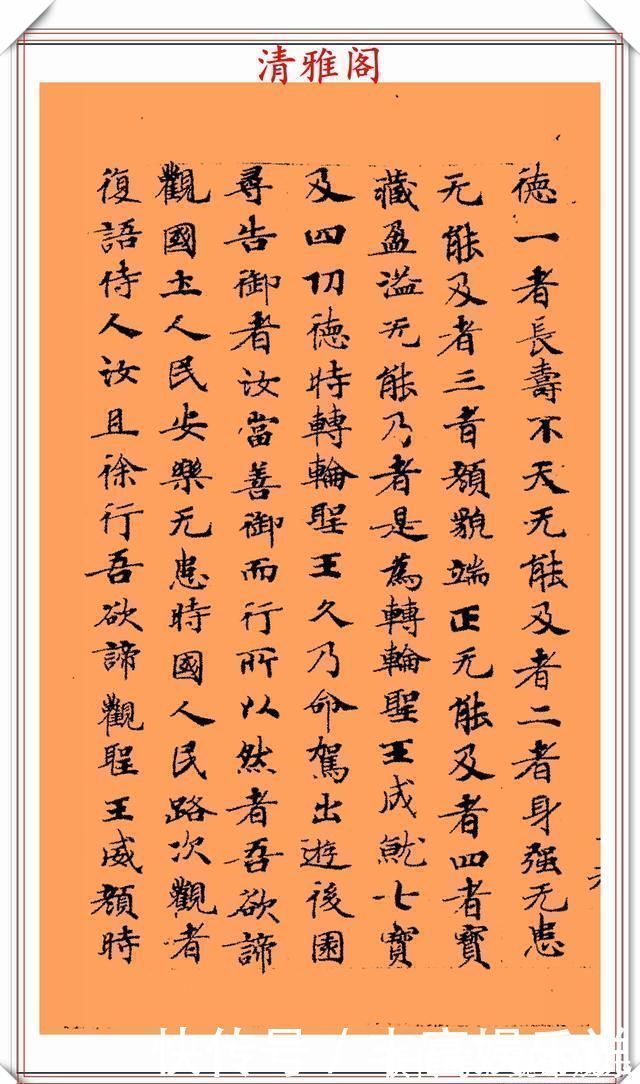 清雅阁
德一者長壽不夭无能及者二者身强无患
无能及者三者顏貌端正无能及者四者寶
藏盈溢无能乃者是為轉輪聖王成就七寶
及四切德時轉輪聖王久乃命駕出遊後園
尋告御者汝當善御而行所以然者吾欲諦
觀國土人民安樂无患時國人民路次觀者
復語侍人汝且徐行吾欲諦觀聖王威顏時